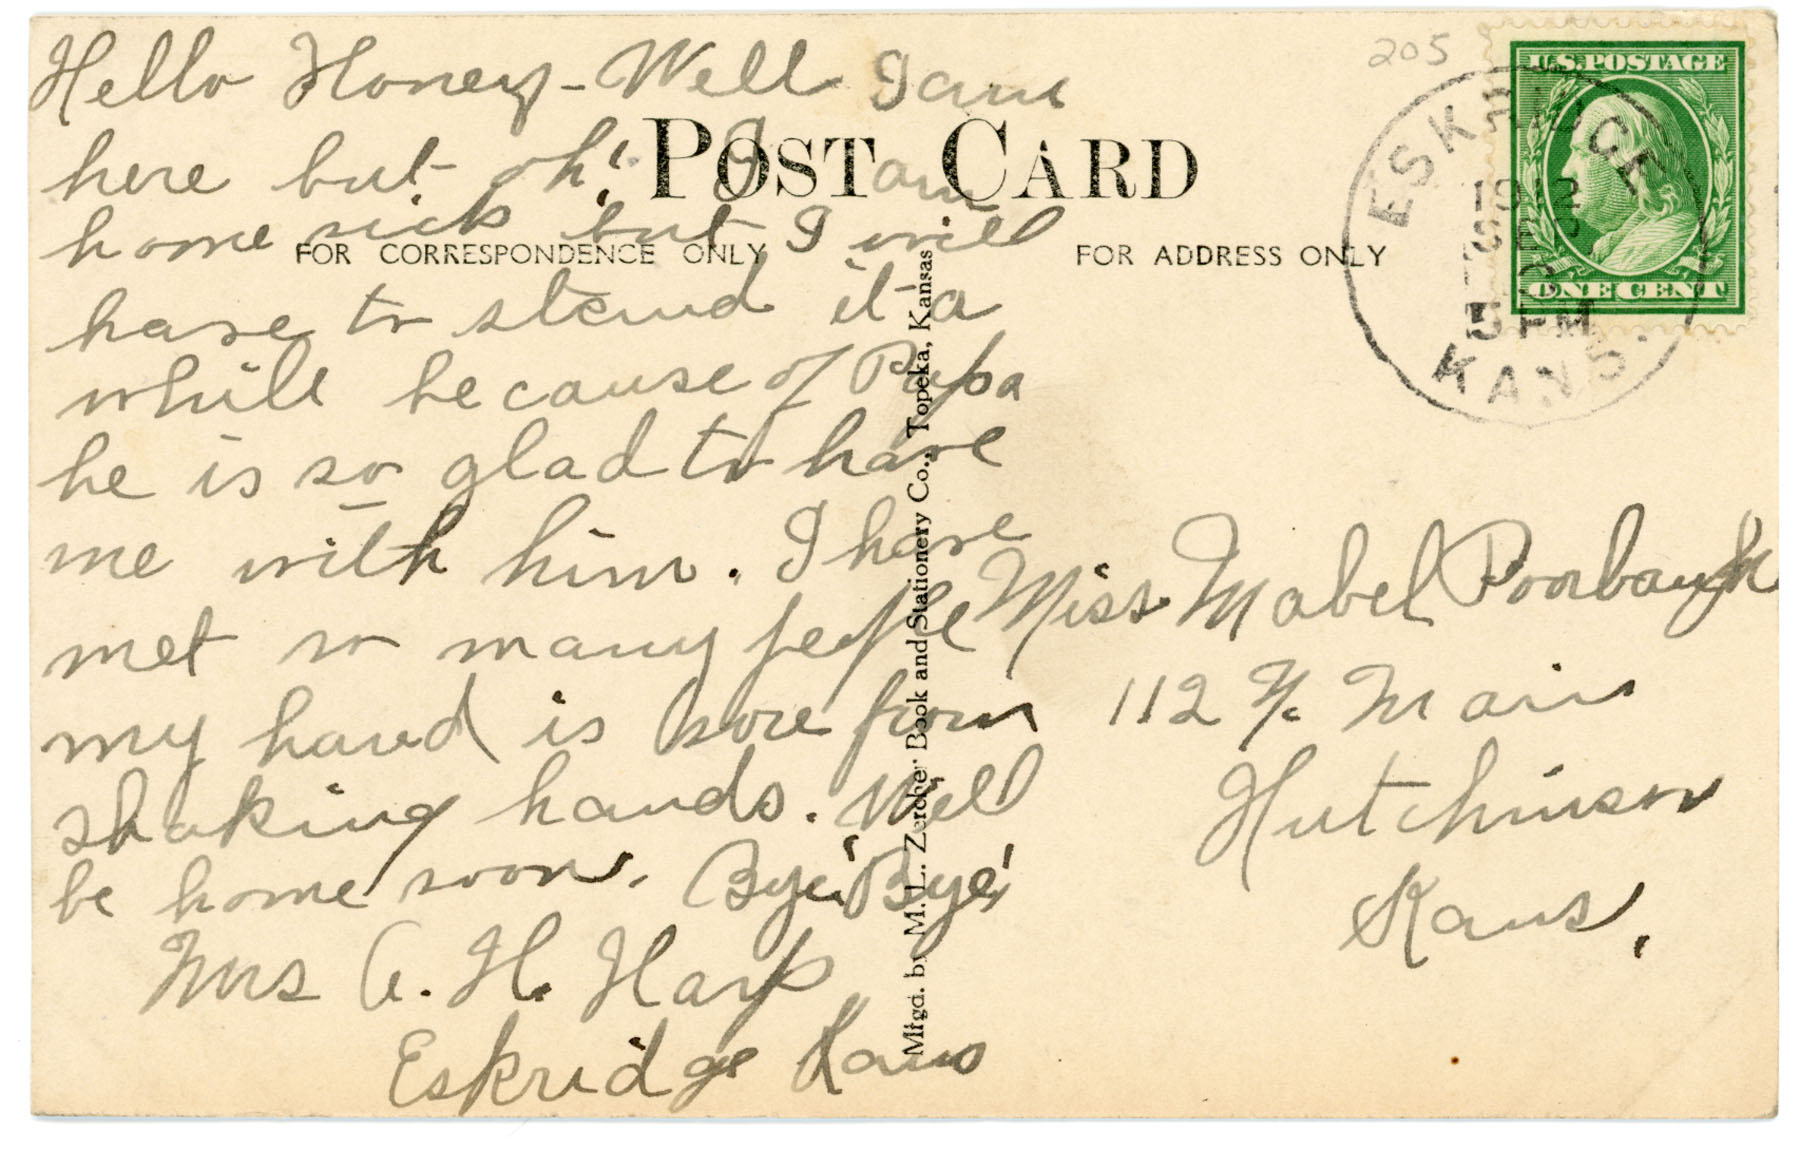 Hello Honey - Well I am
here but oh! I am
home sick but I will
have to stand it a
while because of Papa
he is so glad to have
me with him. I have
met so many people
my hand is sore from
shaking hands. Will
be home soon. Bye! Bye!
Mrs A. H. Harp
Eskridge Kans
POST CARD
FOR CORRESPONDENCE ONLY
FOR ADDRESS ONLY
Mfgd. by M. L. Zercher Book and Stationery Co., Topeka, Kansas
205
U.S. POSTAGE
ONE CENT
ESKRIDGE
1912
5 PM
KANS.
Miss Mabel Poorbaugh
112 N. Main
Hutchinson
Kans.